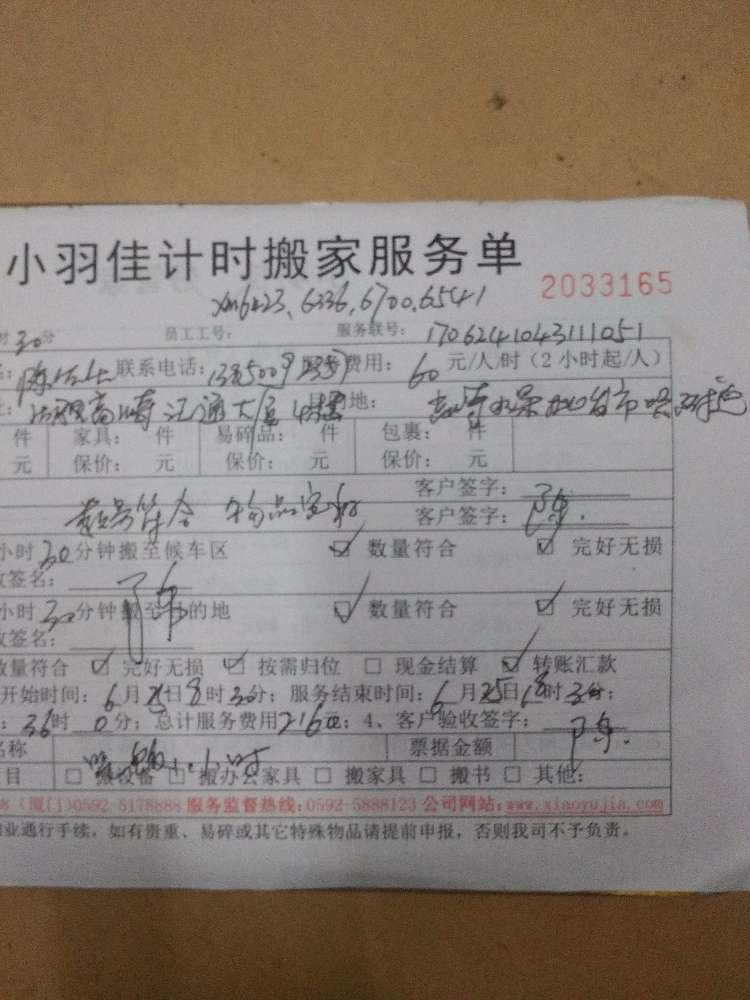 小羽佳计时搬家服务单
2033165
xm6423, 6336, 6700, 6541
时30分 员工工号: 服务联号: 1706241043111051
联系电话: 费用: 60元/人/时（2小时起/人）
高崎汇通大厦 地:
件 家具: 件 易碎品: 件 包裹: 件
元 保价: 元 保价: 元 保价: 元
客户签字: 陈
数量符合 物品完好 客户签字:
小时30分钟搬至候车区 ☑ 数量符合 ☑ 完好无损
收签名: 陈
小时30分钟搬至目的地 ☑ 数量符合 ☑ 完好无损
收签名:
数量符合 ☑ 完好无损 ☑ 按需归位 □ 现金结算 ☑ 转账汇款
开始时间: 6月25日8时30分; 服务结束时间: 6月25日18时30分;
: 36时0分; 总计服务费用2160元; 4、客户验收签字: 陈
名称 小时 票据金额
目 □ 搬设备 □ 搬办公家具 □ 搬家具 □ 搬书 □ 其他:
8（厦门)0592-5178888 服务监督热线:0592-5888123 公司网站:www.xiaoyujia.com
业通行手续, 如有贵重、易碎或其它特殊物品请提前申报, 否则我司不予负责。